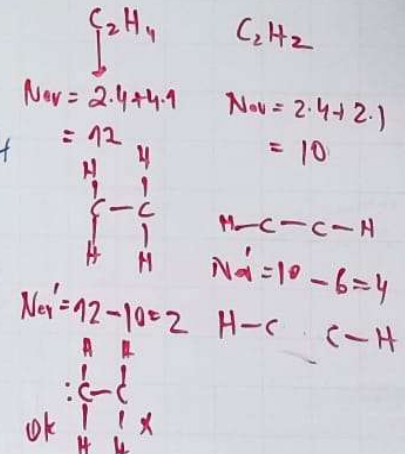 C₂H₄
Nev = 2.4+4.1
= 12
H H
C-C
H H
Nev' = 12-10=2
H H
:C-C
H H
ok x
C₂H₂
Nev = 2.4+2.1
= 10
H-C-C-H
Nev' = 10-6=4
H-C C-H